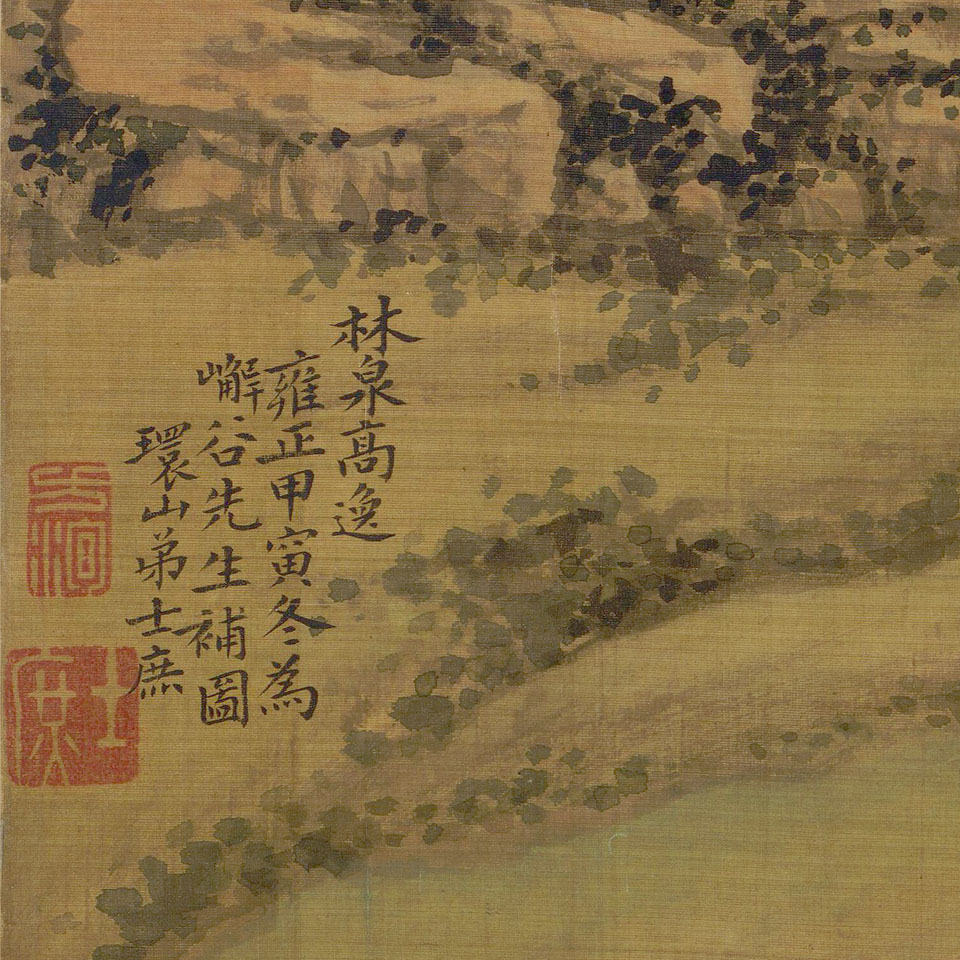 林泉高逸
雍正甲寅冬為
嶰谷先生補圖
環山弟士庶